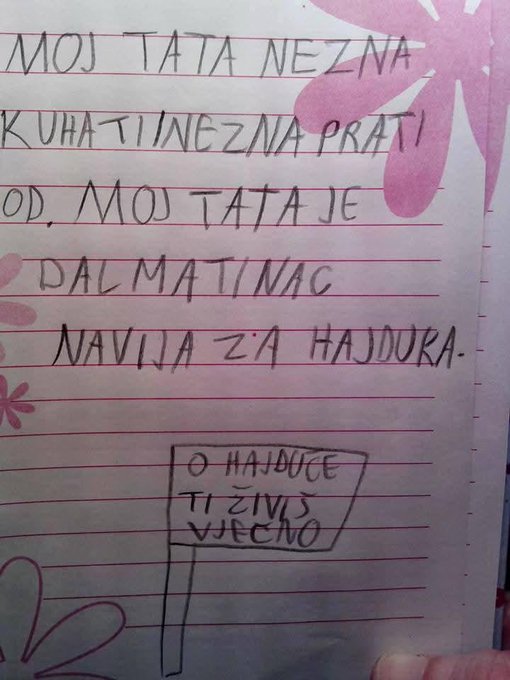 MOJ TATA NEZNA
KUHATI INEZNA PRATI
OD. MOJ TATA JE
DALMATINAC
NAVIJA ZA HAJDUKA.
O HAJDUČE
TI ŽIVIŠ
VJEČNO